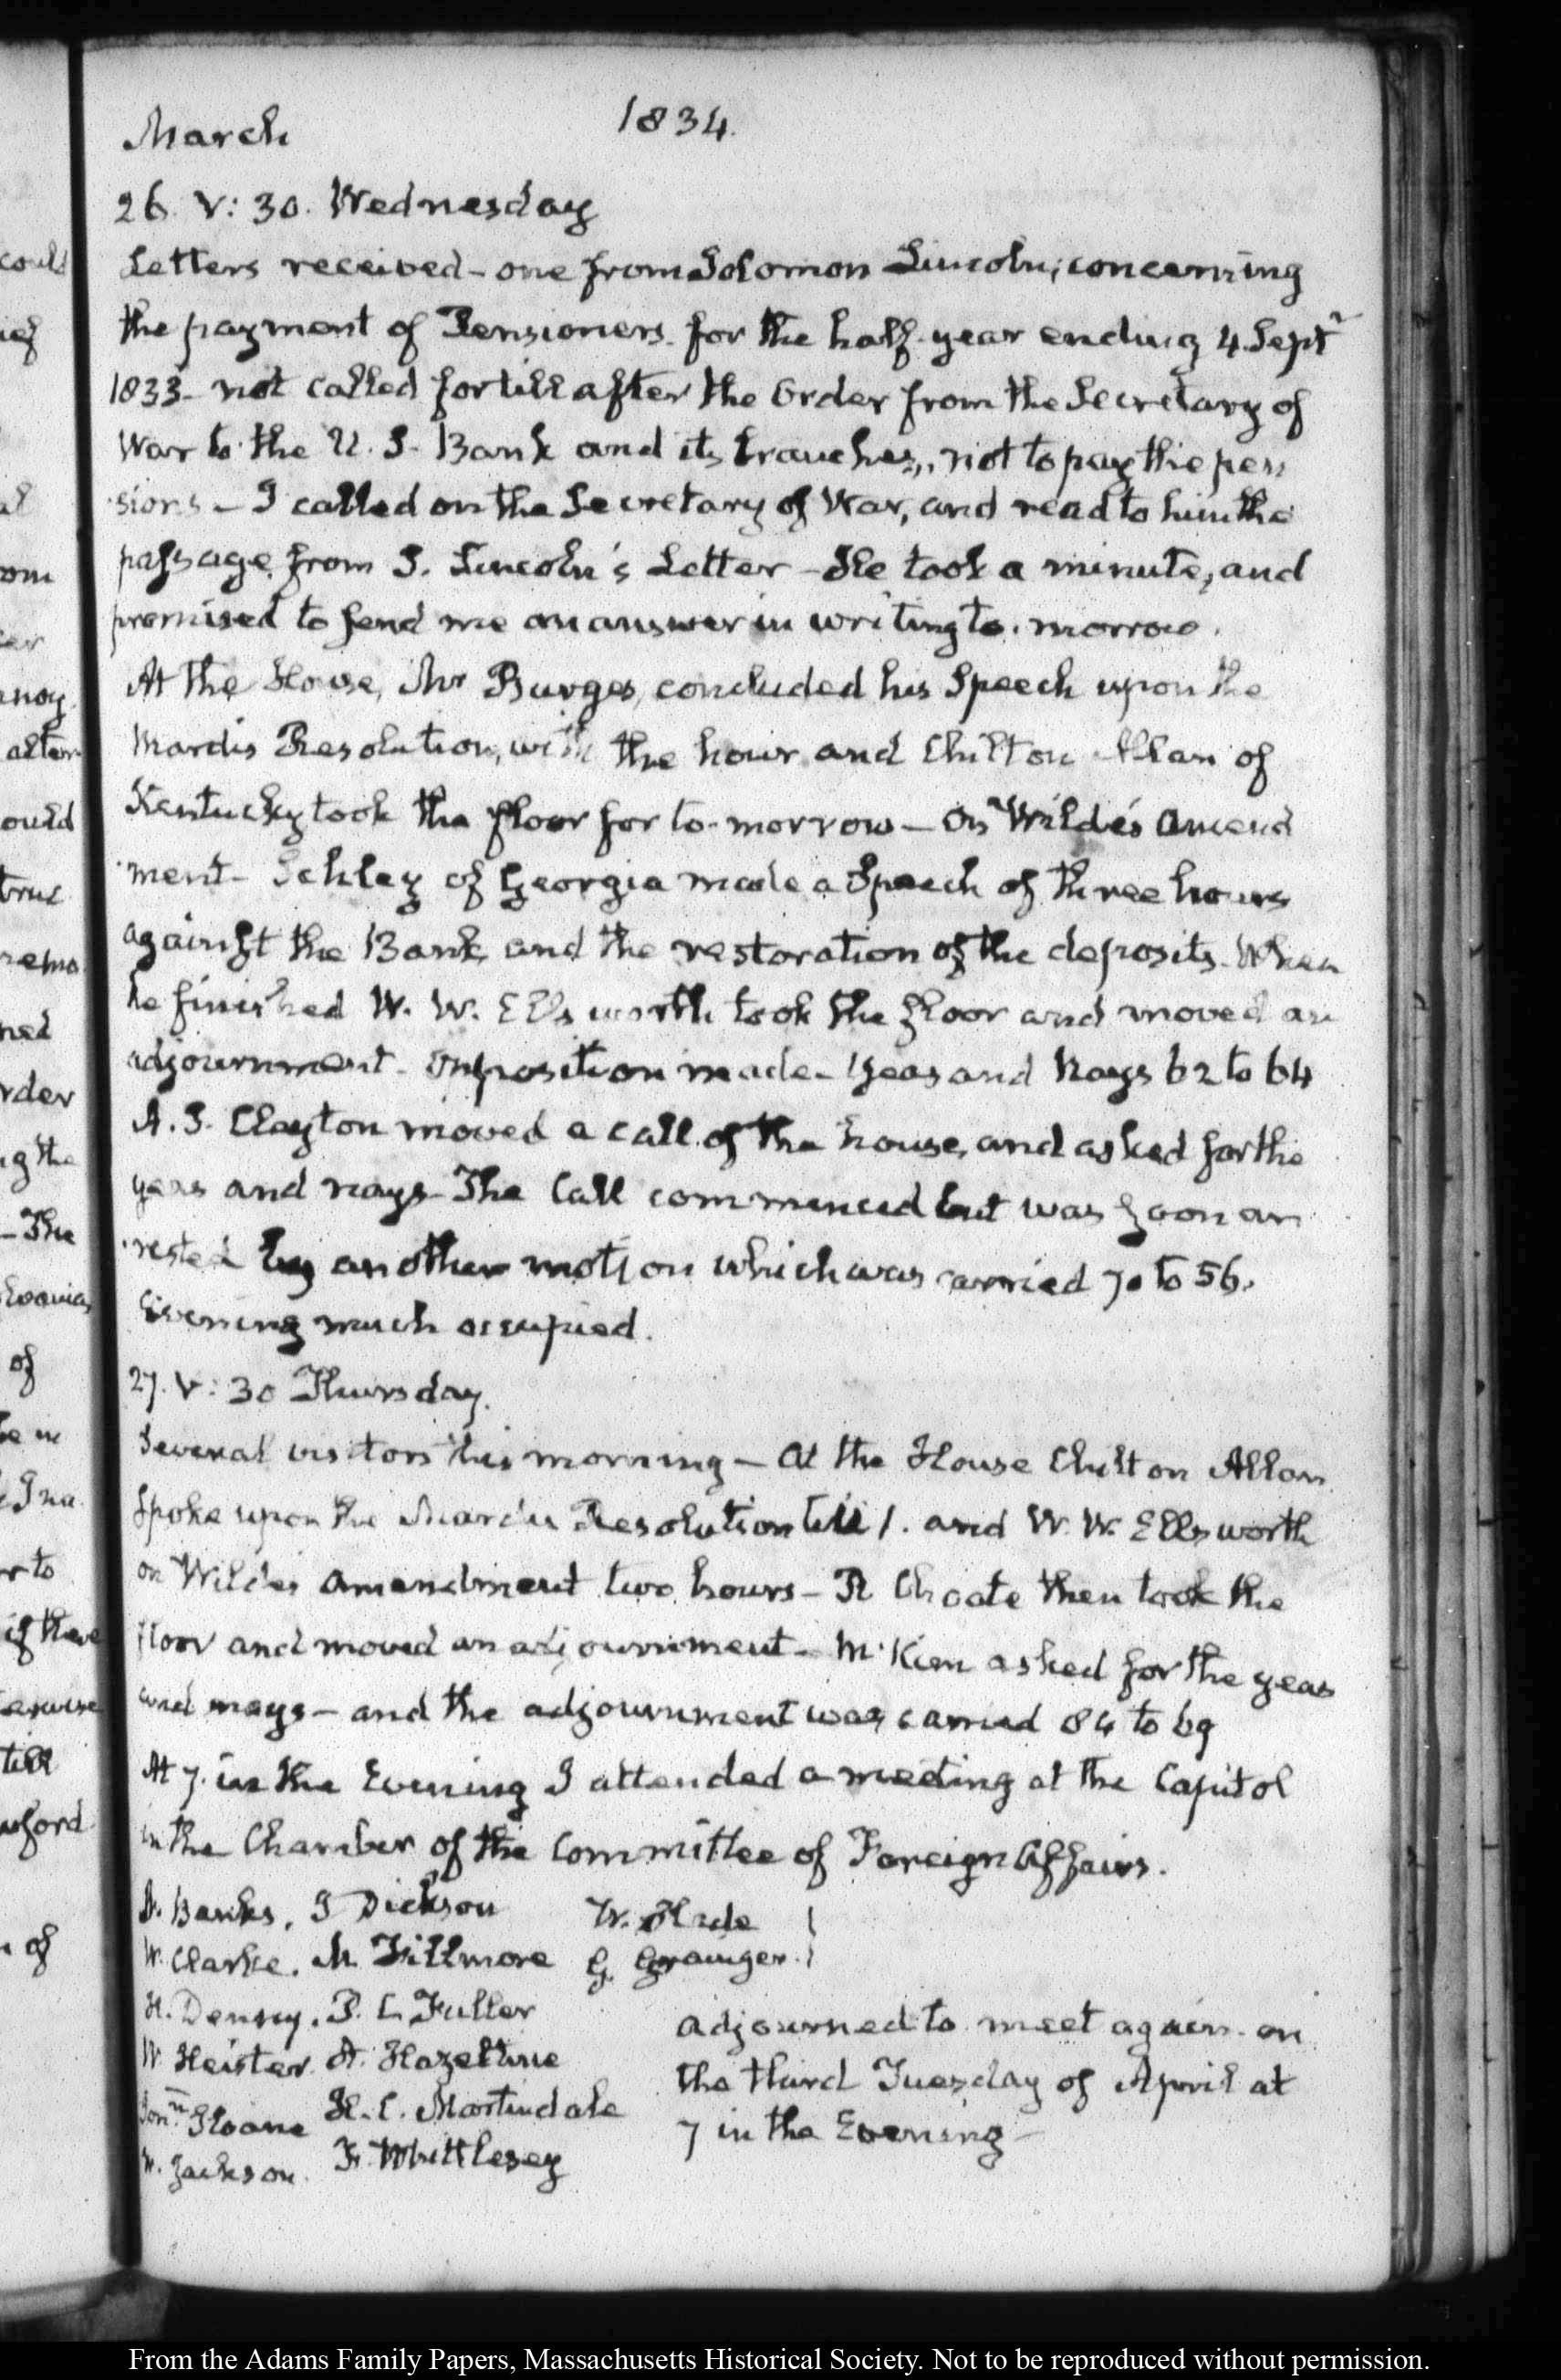 March 1834.
26. V: 30. Wednesday
Letters received – one from Solomon Lincoln, concerning
the payment of Pensioners for the half year ending 4. Septr
1833 – not called for till after the Order from the Secretary of
War to the U. S. Bank and its branches, not to pay the pen
sions – I called on the Secretary of War, and read to him the
passage from S. Lincoln's Letter – He took a minute, and
promised to send me an answer in writing to-morrow.
At the House, Mr Burges, concluded his Speech upon the
Mardis Resolution, with the hour and Chilton Allan of
Kentucky took the floor for to-morrow – On Wilde's Amend
ment – Schley of Georgia made a Speech of three hours
against the Bank and the restoration of the deposits. When
he finished W. W. Ellsworth took the floor and moved an
adjournment – Opposition made – Yeas and Nays 62 to 64
A. S. Clayton moved a call of the house, and asked for the
yeas and nays – The Call commenced but was soon ar
rested by another motion which was carried 70 to 56.
Evening much occupied.
27. V: 30 Thursday.
Several visitors this morning – At the House Chilton Allan
spoke upon the Mardis Resolution till 1. and W. W. Ellsworth
on Wilde's amendment two hours – R Choate then took the
floor and moved an adjournment – McKim asked for the yeas
and nays – and the adjournment was carried 84 to 69
At 7. in the Evening I attended a meeting at the Capitol
in the Chamber of the Committee of Foreign Affairs.
J. Banks, J Dickson W. Slade
W. Clarke. M Fillmore G. Granger.
H. Denny. P. C. Fuller
W Heister. A. Hazeltine
Jonn. Sloane H. C. Martindale
W. Jackson. F. Whittlesey
adjourned to meet again on
the third Tuesday of April at
7 in the Evening –
could
alter
ould
rema
rder
g the
– The
of
r to
if there
till
of
From the Adams Family Papers, Massachusetts Historical Society. Not to be reproduced without permission.